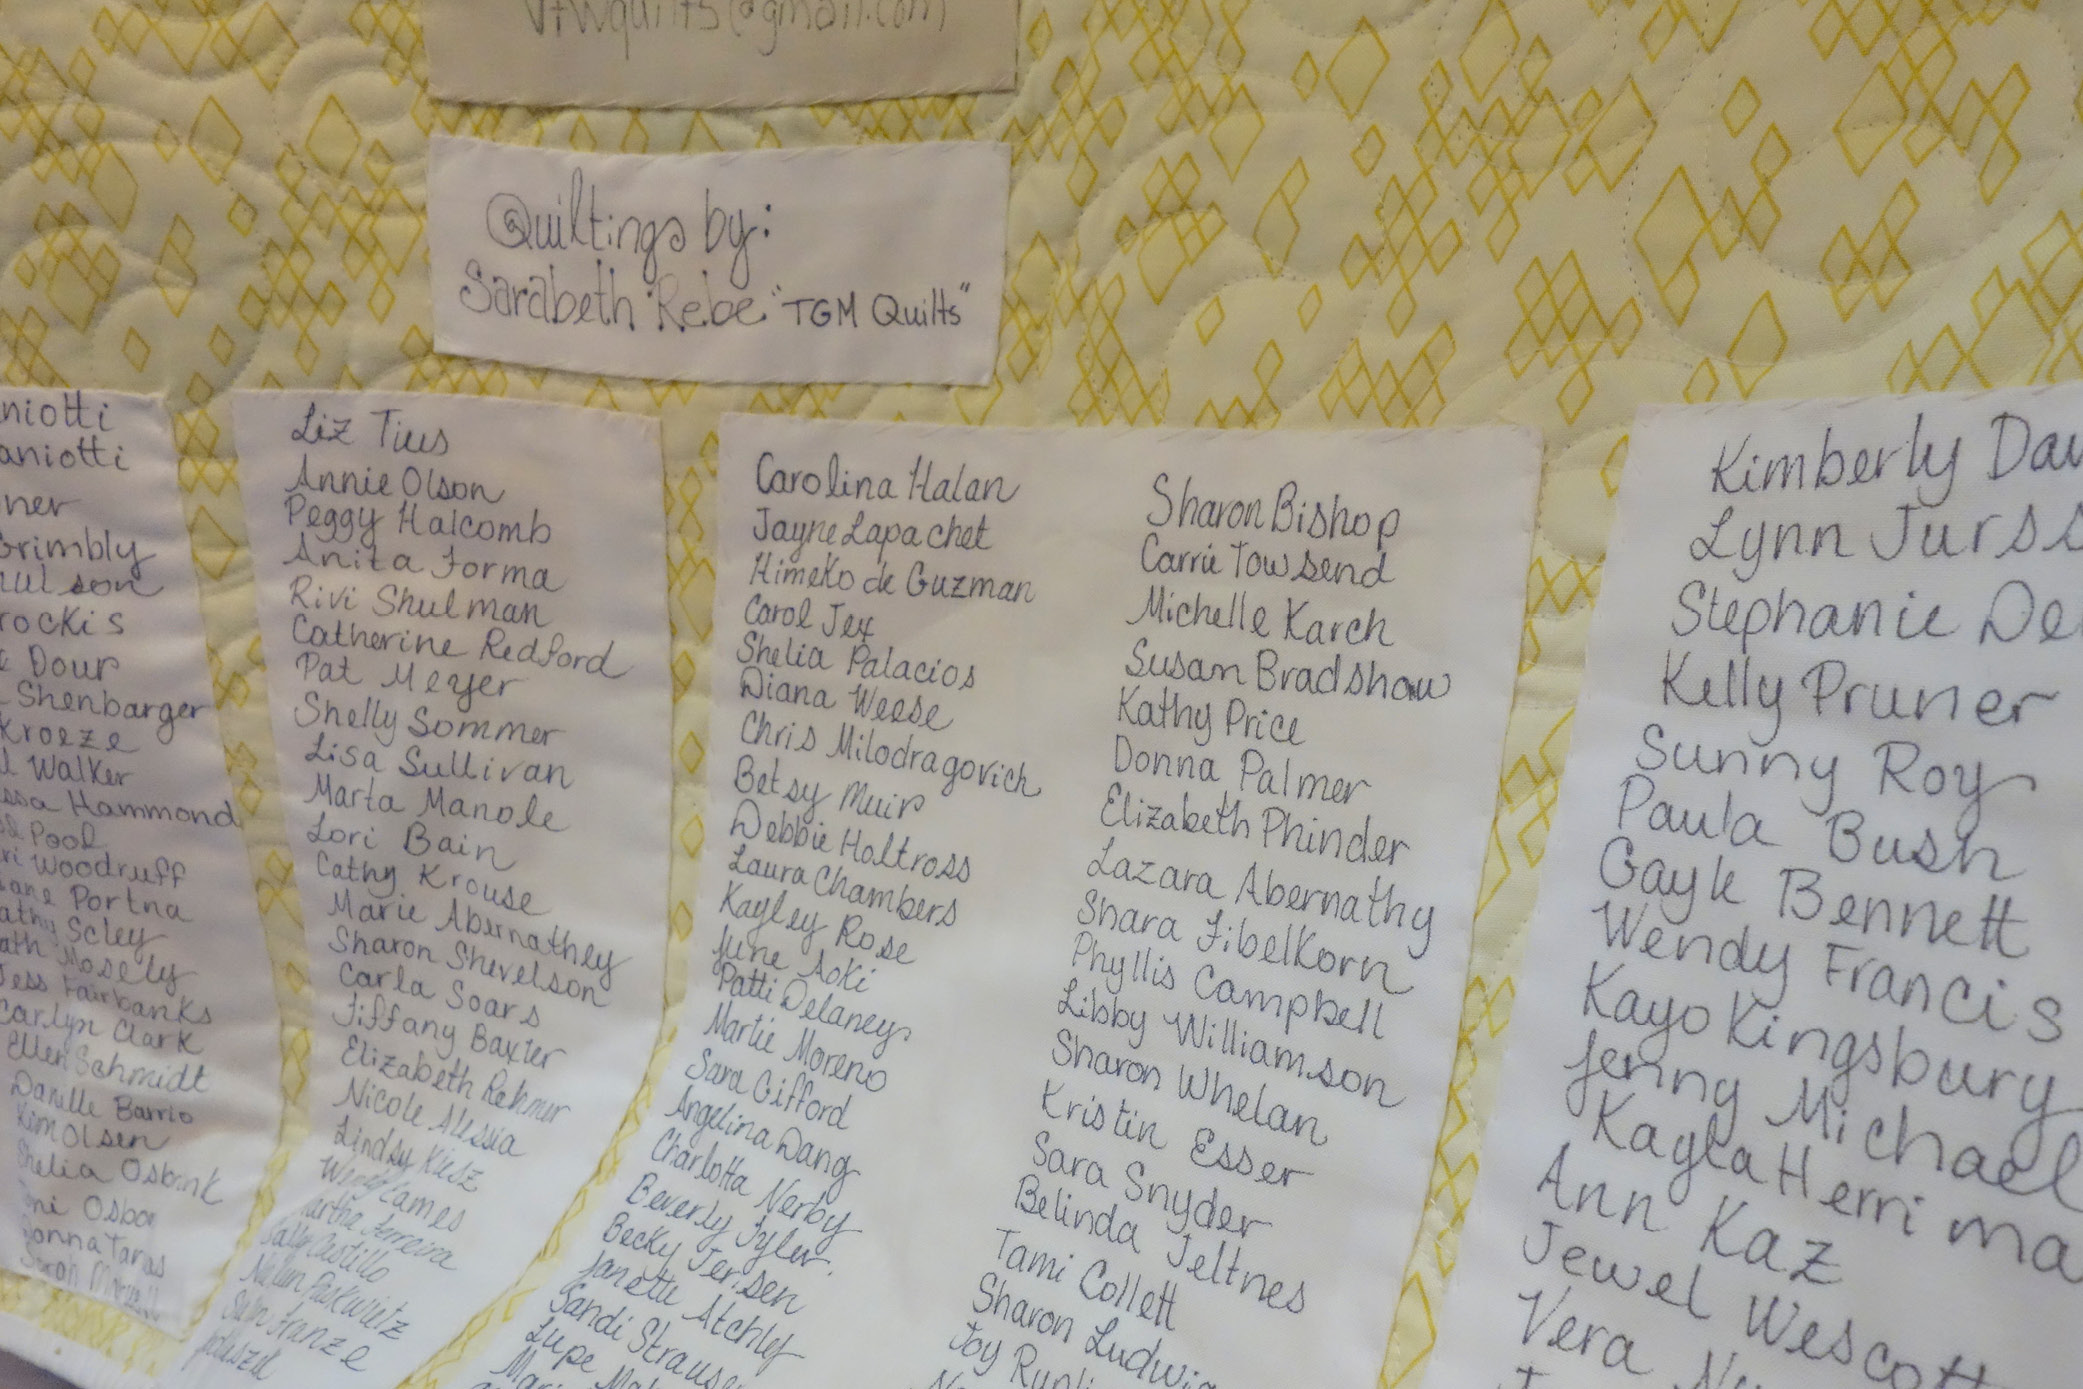 vtwquilts@gmail.com
Quiltings by:
Sarabeth Rebe "TGM Quilts"
niotti
aniotti
ner
Grimbly
ulson
rockis
Dour
Shenbarger
Kroeze
Walker
ssa Hammond
Pool
ri Woodruff
ane Portna
athy Scley
ath Mosely
Jess Fairbanks
Carlyn Clark
Ellen Schmidt
Danille Barrio
Kim Olsen
Shelia Osbrink
oni Osbor
Donna Taras
Sarah
Liz Tius
Annie Olson
Peggy Halcomb
Anita Forma
Rivi Shulman
Catherine Redford
Pat Meyer
Shelly Sommer
Lisa Sullivan
Marta Manole
Lori Bain
Cathy Krouse
Marie Abernathey
Sharon Shevelson
Carla Soars
Tiffany Baxter
Elizabeth Rehmer
Nicole Alessia
Lindsy Kiesz
Wendy Eames
artha Ferreira
Sally Castillo
Franze
Carolina Halan
Jayne Lapachet
Himeko de Guzman
Carol Jex
Shelia Palacios
Diana Weese
Chris Milodragovich
Betsy Muir
Debbie Holtross
Laura Chambers
Kayley Rose
June Aoki
Patti Delaney
Martie Moreno
Sara Gifford
Angelina Dang
Charlotta Nerby
Beverly Tyler
Becky Jensen
Janette Atchley
Sandi Strause
Lupe
Sharon Bishop
Carrie Towsend
Michelle Karch
Susan Bradshaw
Kathy Price
Donna Palmer
Elizabeth Phinder
Lazara Abernathy
Shara Fibelkorn
Phyllis Campbell
Libby Williamson
Sharon Whelan
Kristin Esser
Sara Snyder
Belinda Jeltnes
Tami Collett
Sharon Ludwig
Joy
Kimberly Dav
Lynn Jurss
Stephanie De
Kelly Pruner
Sunny Roy
Paula Bush
Gayle Bennett
Wendy Francis
Kayo Kingsbury
Jenny Michael
Kayla Herrima
Ann Kaz
Jewel Wescott
Vera